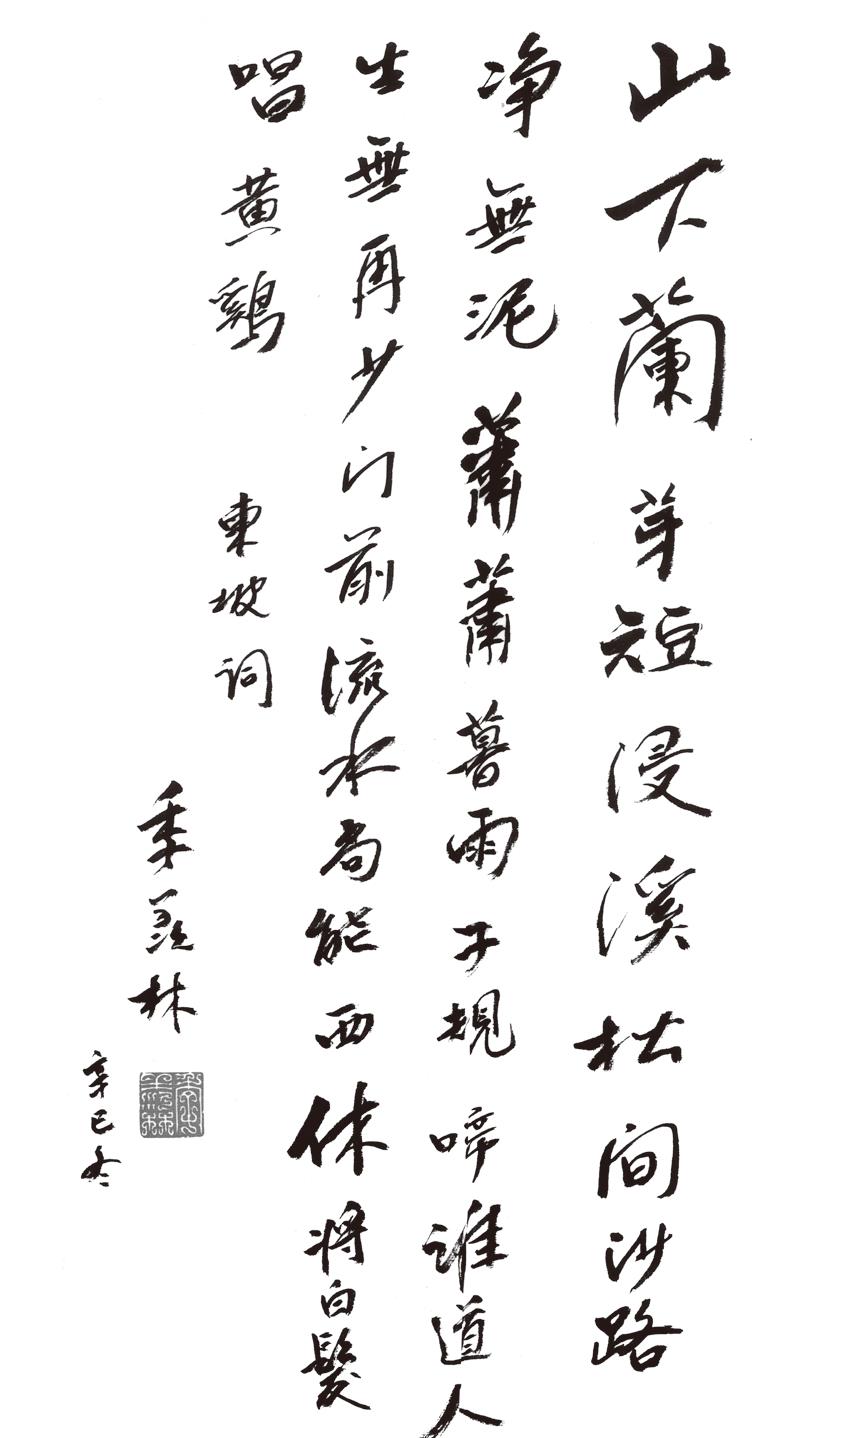 山下蘭芽短浸溪松間沙路
净無泥蕭蕭暮雨子規啼誰道人
生無再少门前流水尚能西休將白髮
唱黄鷄
東坡詞
季羡林
辛巳冬